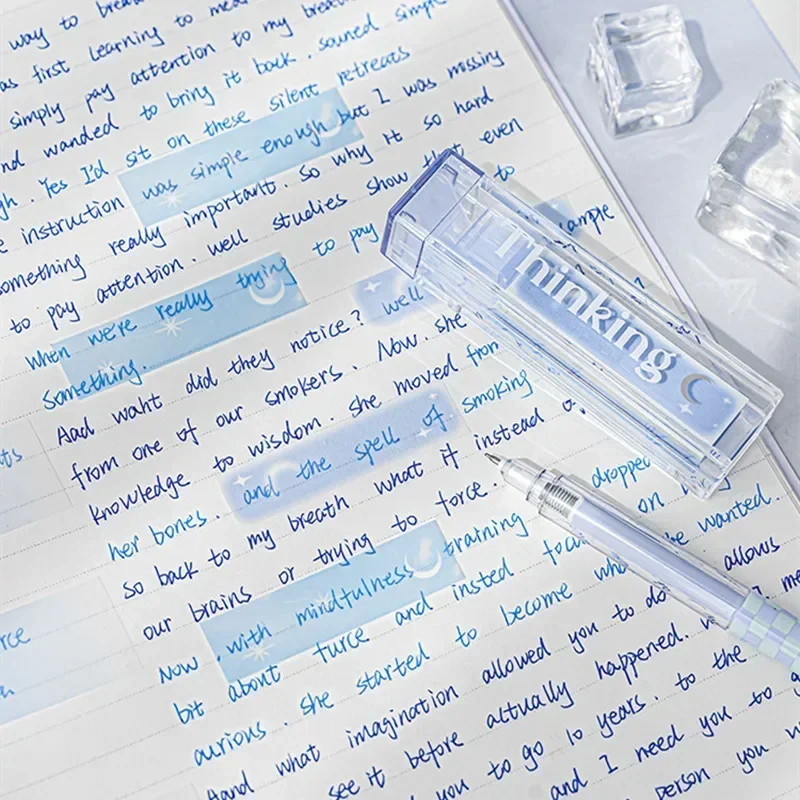 way to brea
as first learning to med
simply pay attention to my breath
nd wanded to bring it back. souned simple
gh. Yes I'd sit on these silent retreats
e instruction was simple enough but I was missing
something really important. So why it so hard
to pay attention. well studies show that even
when we're really trying to pay to
something. well ample
Aad waht did they notice?
from one of our smokers. Now. she
knowledge to wisdom. she moved from
her bones. and the spell of smoking
so back to my breath what if instead o
our brains or trying to force. dropped
Now. with mindfulness training on
bit about turce and insted focu e wanted.
aurious. she started to become wh
Aand what imagination allowed you to do allows
see it before actually happened.
you to go 10 years. to the
and I need you to g
person you w
Thinking
ts
rce